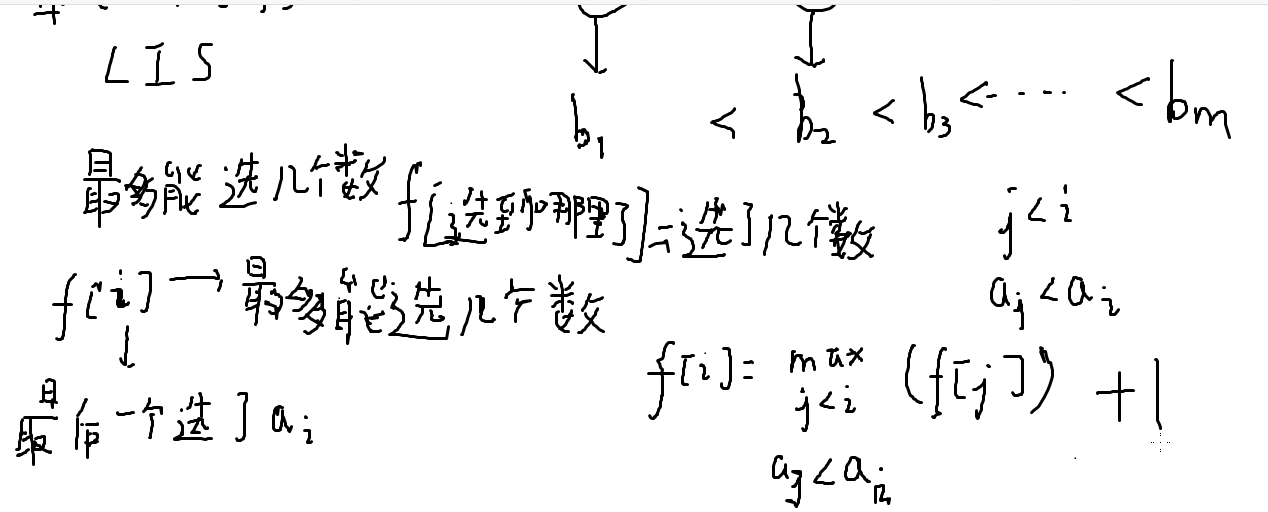 LIS
b1 < b2 < b3 < ····· < bm
最多能选几个数
f[选到哪里了]=选了几个数
j<i
aj<ai
f[i] → 最多能选几个数
↓
最后一个选了ai
f[i]= max (f[j]) +1
j<i
aj<ai